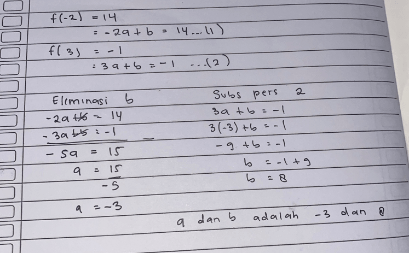 f(-2) = 14
= -2a + b = 14 ...(1)
f(3) = -1
: 3a + b = -1 ...(2)
Eliminasi b
-2a + b = 14
- 3a + b = -1
- 5a = 15
a = 15
-5
a = -3
Subs pers 2
3a + b = -1
3(-3) + b = -1
-9 + b = -1
b = -1 + 9
b = 8
a dan b adalah -3 dan 8